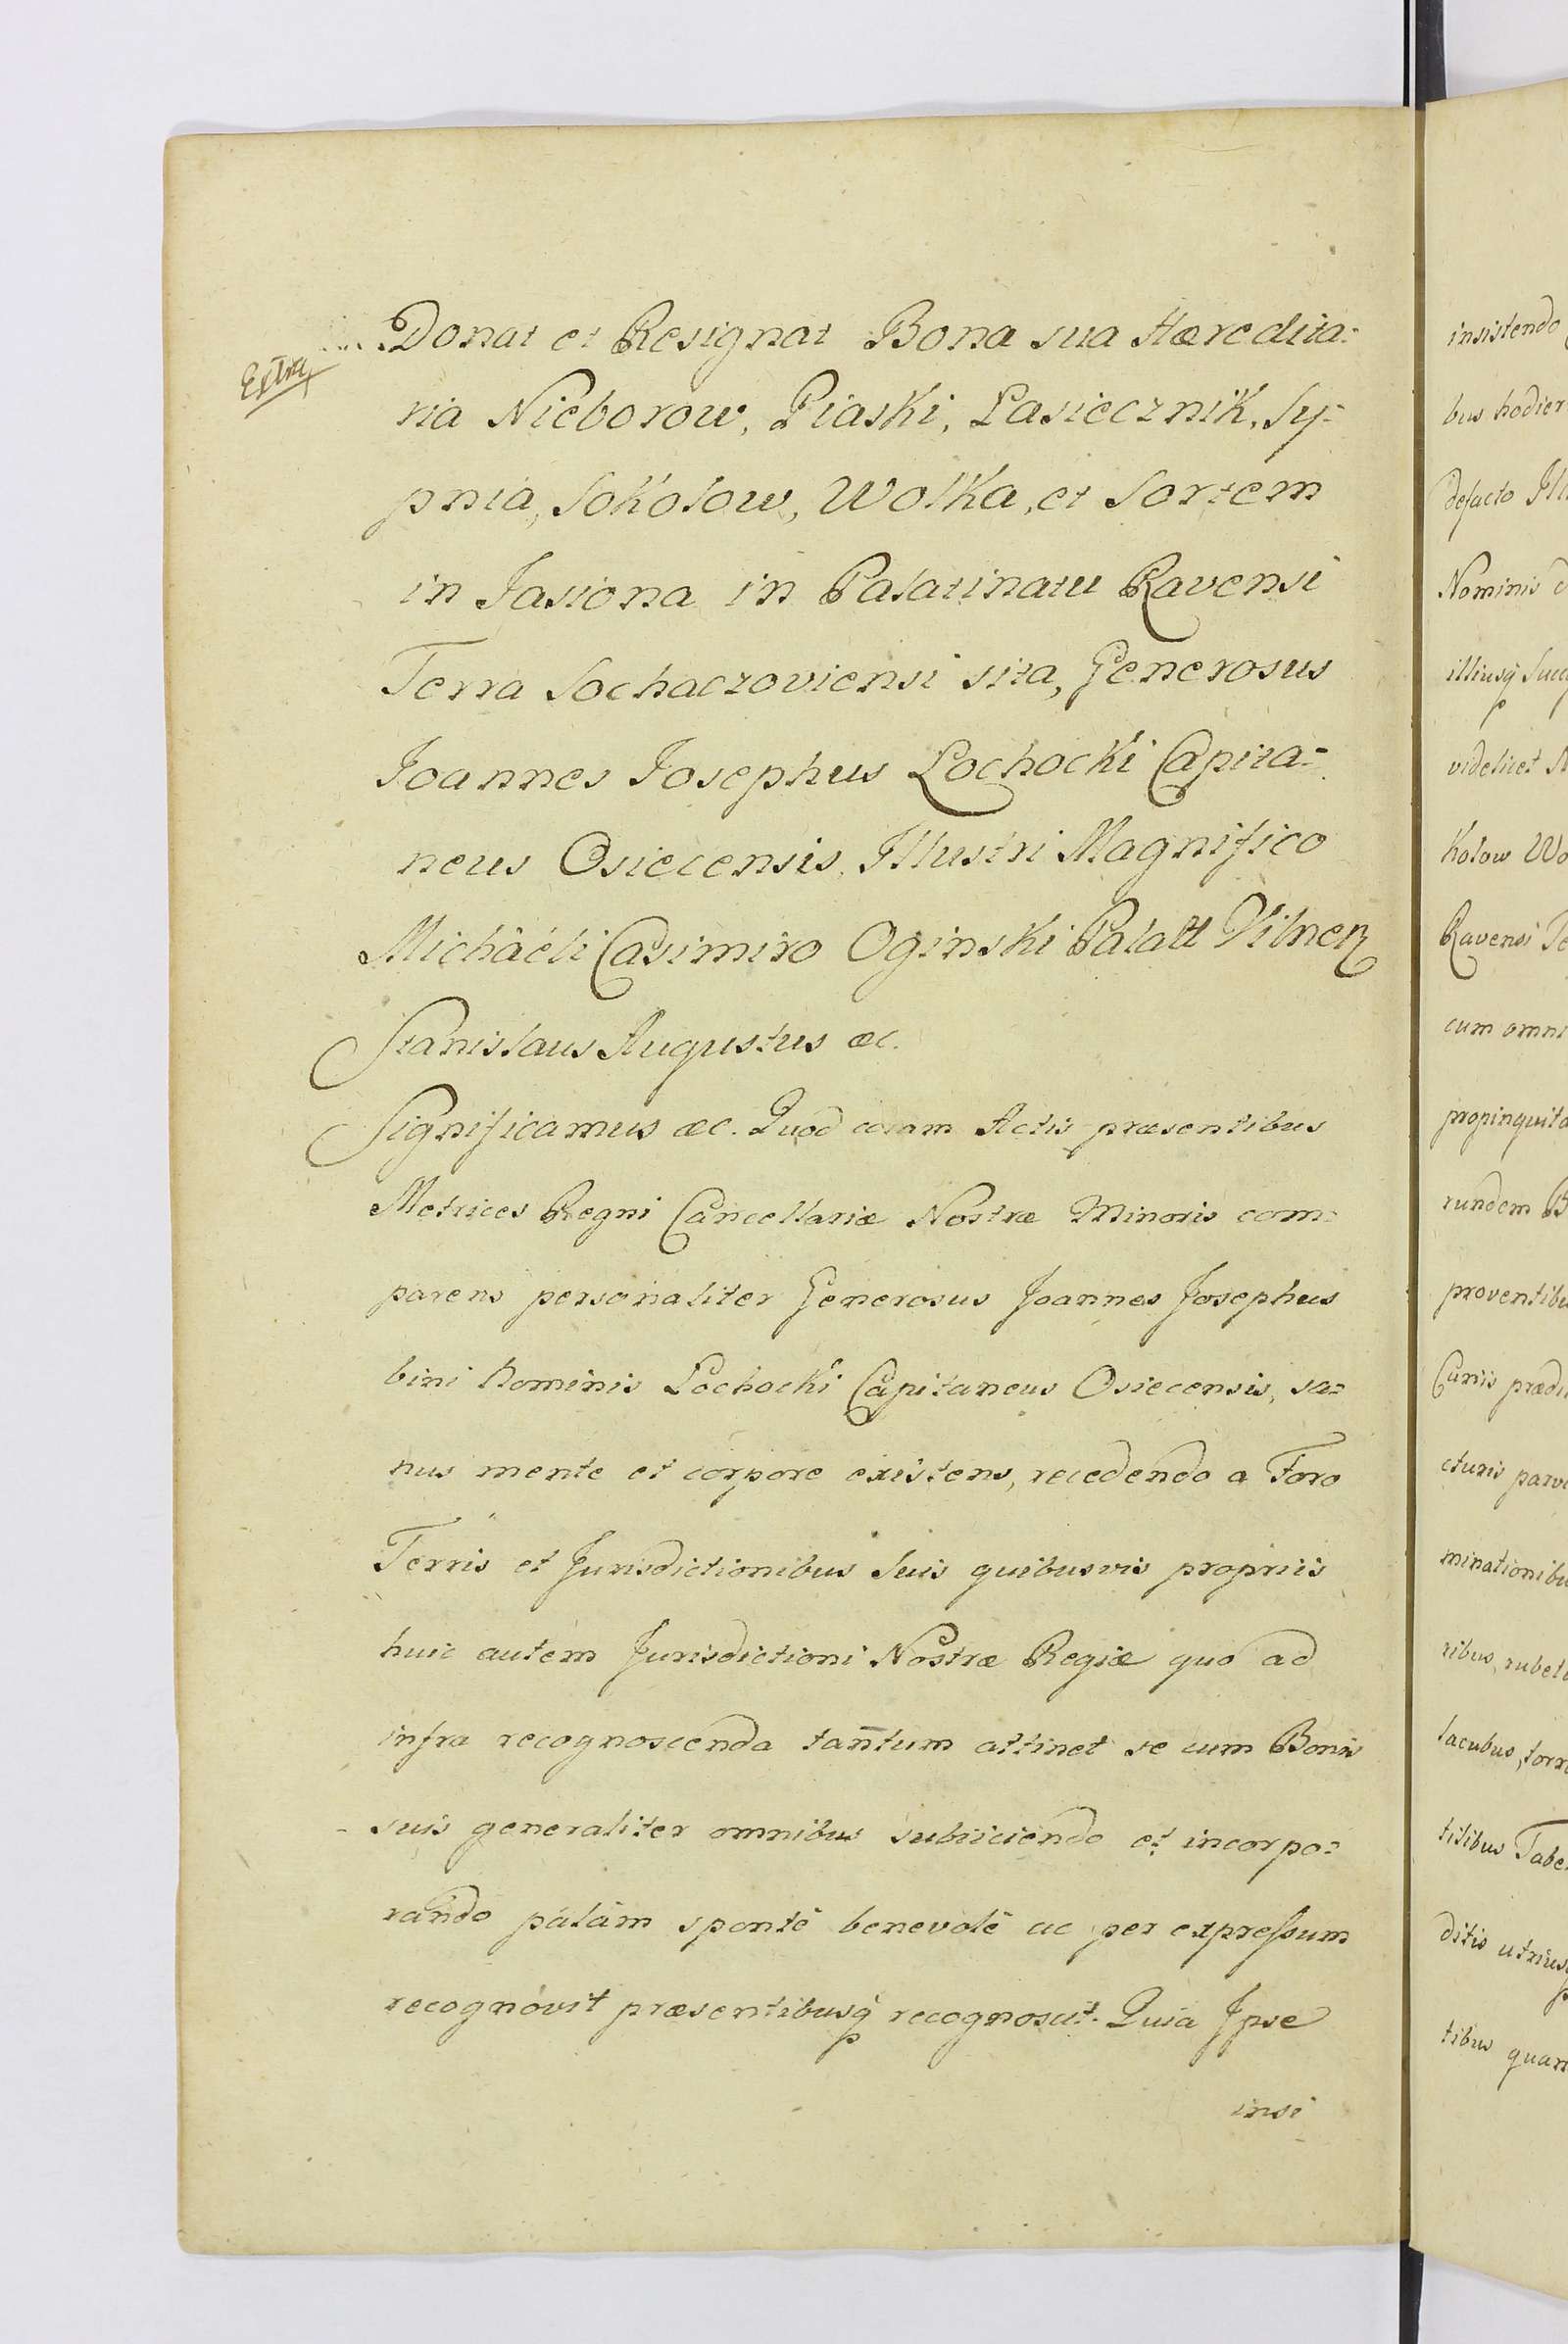 Extra
Donat et Resignat Bona sua Hæredita=
ria Nieborow, Piaski, Lasiecznik, Sy=
pnia, Sokolow, Wolka, et Sortem
in Jasiona in Palatinatu Ravensi
Terra Sochaczoviensi sita, Generosus
Joannes Josephus Lochocki Capita=
neus Osiecensis, Illustri Magnifico
Michaéli Casimiro Oginski Palatt Vilnen
Stanislaus Augustus æc.
Significamus æc. Quod coram Actis præsentibus
Metrices Regni Cancellariæ Nostræ Minoris com=
parens personaliter Generosus Joannes Josephus
bini Nominis Lochocki Capitaneus Osiecensis, sa=
nus mente et corpore existens, recedendo a Foro
Terris et Jurisdictionibus Suis quibusvis propriis
huic autem Jurisdictioni Nostræ Regiæ quo ad
infra recognoscenda tantum attinet se cum Bonis
suis generaliter omnibus subiiciendo et incorpo=
rando palàm spontè benevolè ac per expressum
recognovit præsentibusq recognoscit. Quia Ipse
insi
insistendo
bus hodier
defacto Ill
Nominis d
illiusq Succ
videlicet N
kolow Wo
Ravensi Te
cum omni
propinquita
rundem B
proventibu
Curiis prædi
cturis parv
minationibu
ribus, rubet
lacubus, torr
tilibus Tabe
ditis utrius
tibus quam